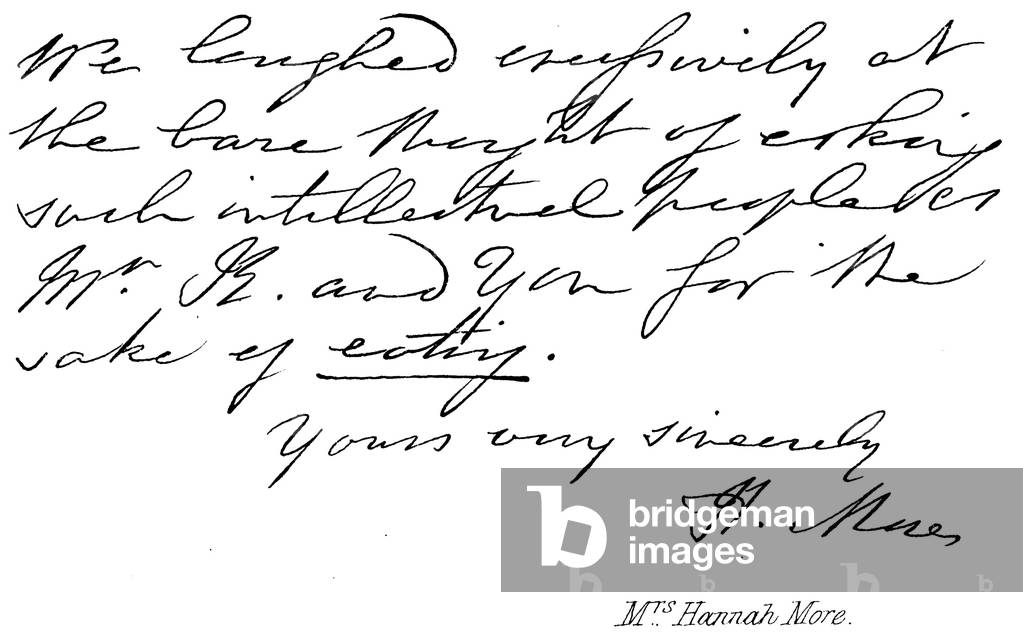 We laughed excessively at
the bare thought of asking
such intellectual people as
Mr. K. and You for the
sake of eating.
Yours very sincerely
H. More
bridgeman
images
Mrs Hannah More.